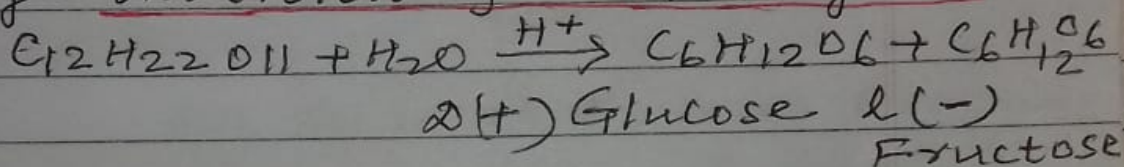 C12H22O11 + H2O H+→ C6H12O6 + C6H12O6
D(+) Glucose l(-)
Fructose